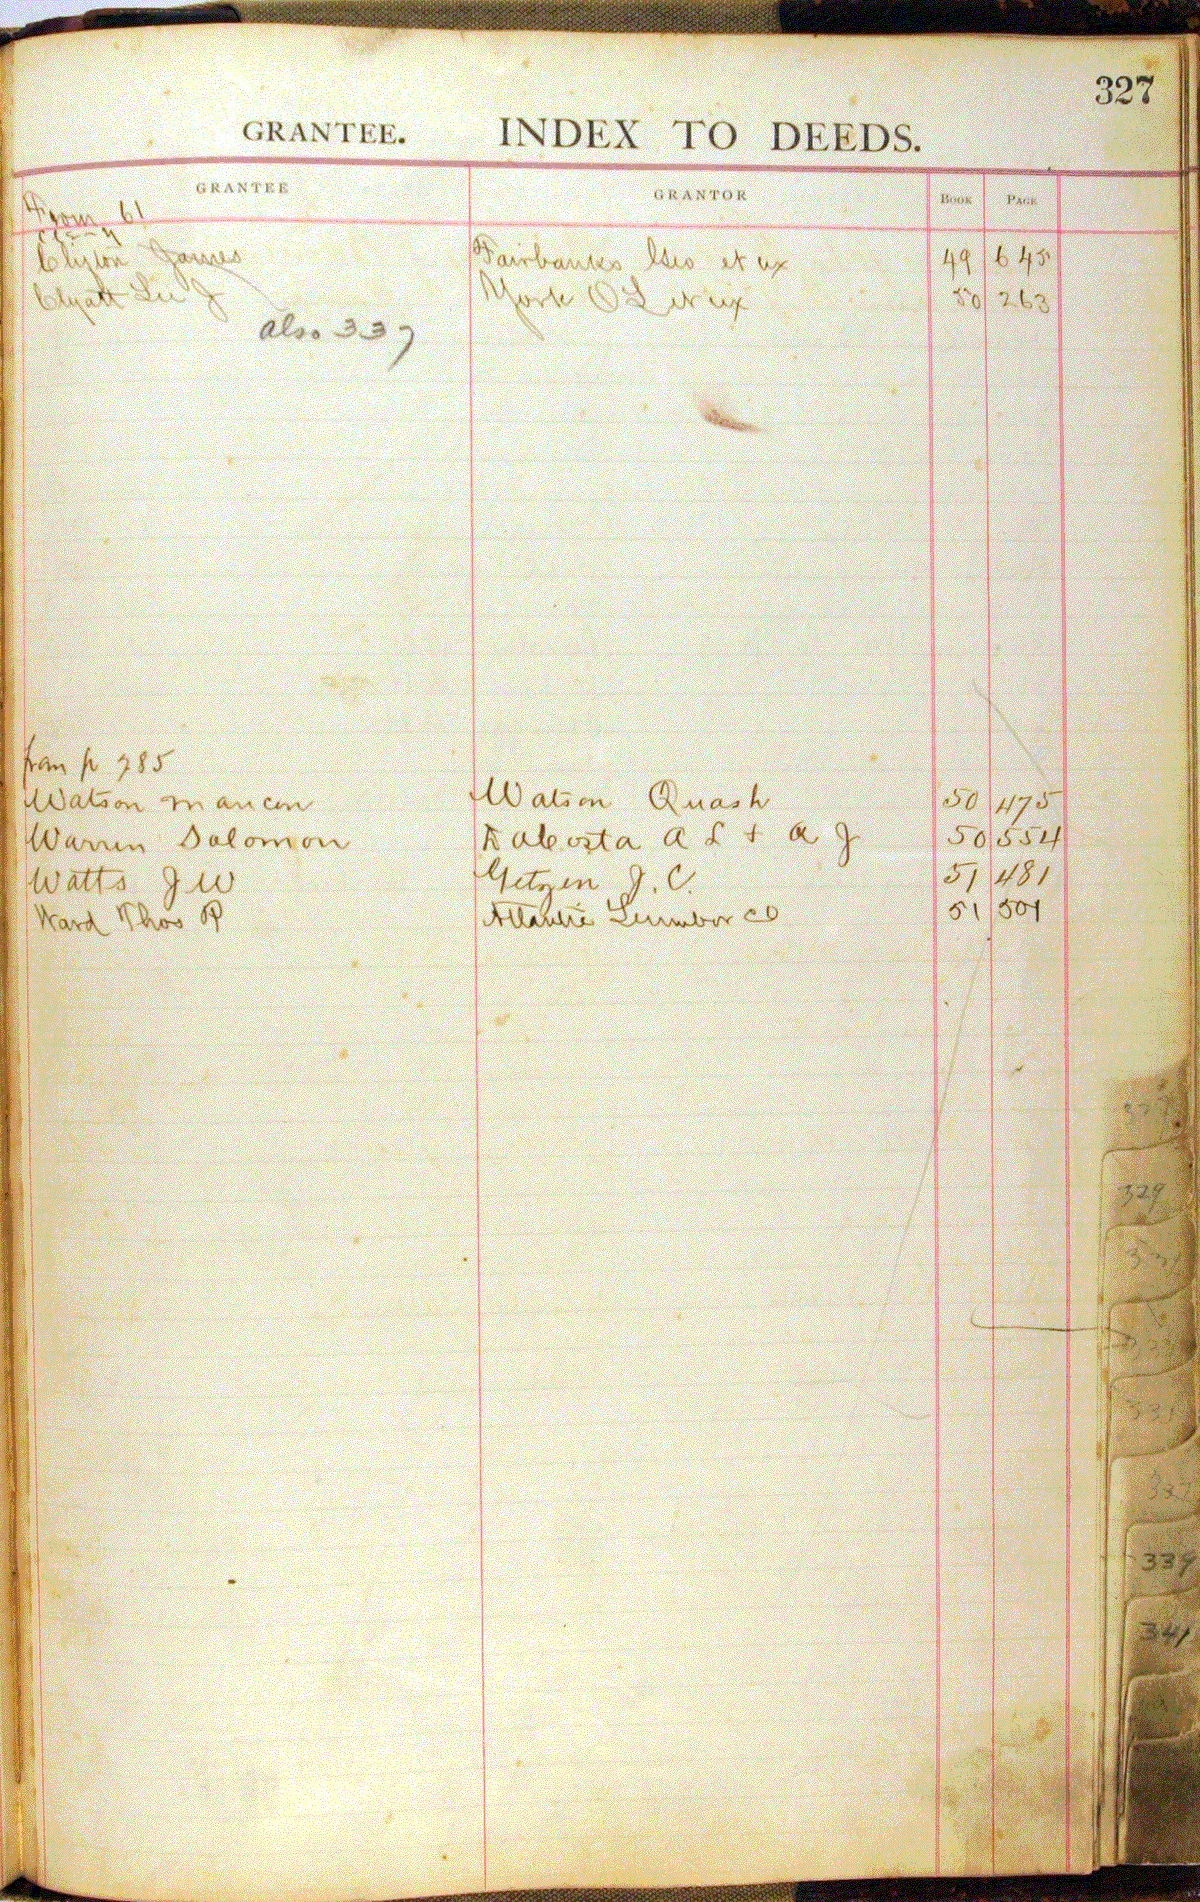 327
GRANTEE. INDEX TO DEEDS.
GRANTEE GRANTOR BOOK PAGE
From 61
James Fairbanks Geo et ux 49 645
Clyatt Lee J York O L et ux 50 263
also 337
from p 285
Watson Watson Quash 50 475
Warren Solomon DaCosta A L + A J 50 554
Watts J W Getzen J. C. 51 481
Ward Thos P Atlantic Lumber Co 51 501
329
339
341